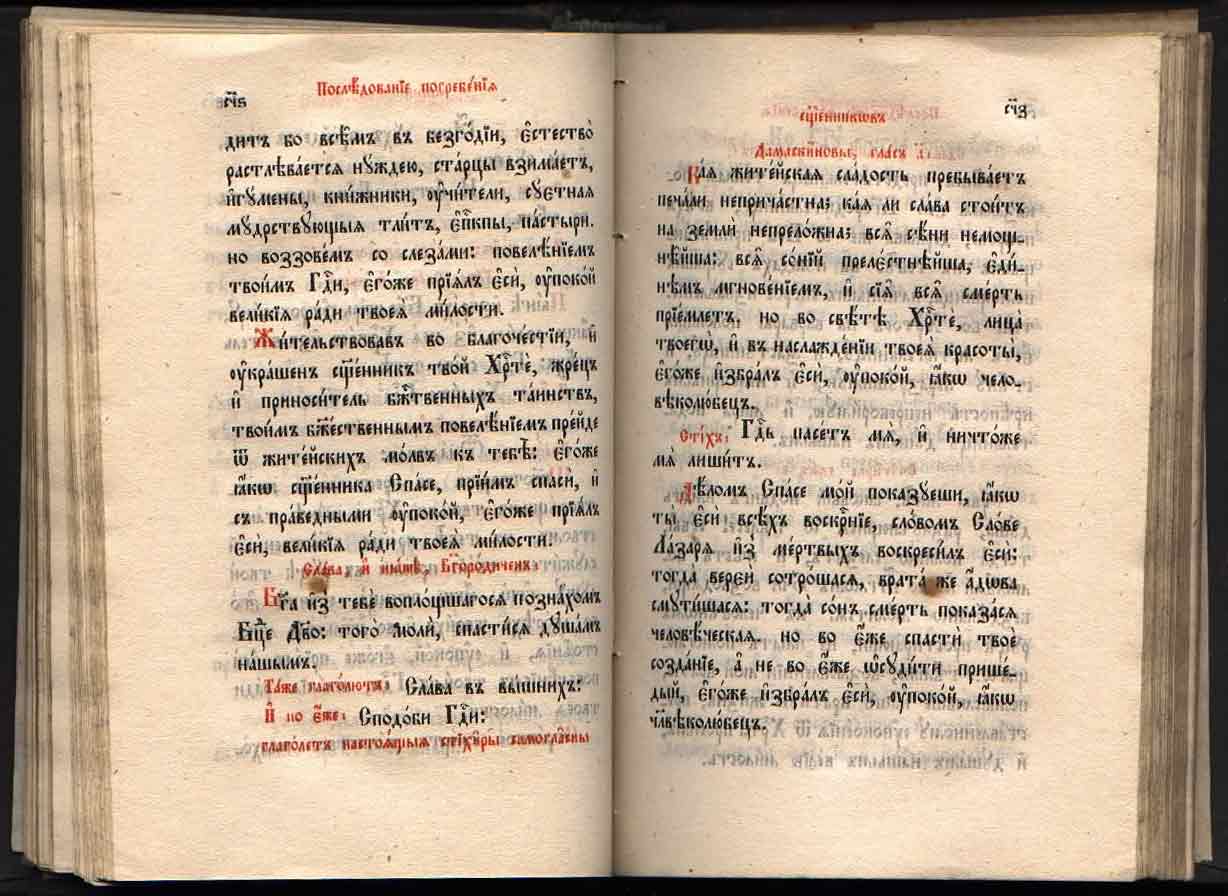 Послѣ́дованїе погребе́нїѧ
с҃чѕ
дитъ бо всѣ̑мъ въ безго́дїи, є҆стество̀
растлѣва́ется нꙋ́ждею, ста́рцы взима́етъ,
и҆гꙋ́мены, кни́жники, ᲂу҆чи́тели, сꙋ́етнаѧ
мꙋ́дрствꙋющыѧ тли́тъ, є҆п҃кпы, па́стыри.
но воззове́мъ со слеза́ми: повелѣ́нїемъ
твои́мъ Гдⷭ҇и, є҆го́же прїѧ́лъ є҆сѝ, ᲂу҆поко́й
вели́кїѧ ра́ди твоеѧ̀ ми́лости.
Жи́тельствовавъ во благоче́стїи, и҆
ᲂу҆кра́шенъ сщ҃е́нникъ тво́й Хрⷭ҇тѐ, жре́цъ
и҆ приноси́тель бжⷭ҇твенныхъ та́инствъ,
твои́мъ бж҃е́ственнымъ повелѣ́нїемъ пре́йде
ѿ жите́йскихъ мо́лвъ къ тебѣ̀: є҆го́же
ꙗ҆́кѡ сщ҃е́нника Спа́се, прїи́мъ спасѝ, и҆
съ пра́ведными ᲂу҆поко́й, є҆го́же прїѧ́лъ
є҆сѝ, вели́кїѧ ра́ди твоеѧ̀ ми́лости.
Сла́ва, и҆ ны́нѣ, Бг҃оро́диченъ:
Бг҃а и҆з̾ тебє̀ воплощшагосѧ позна́хомъ
Бцⷣе Дв҃о: того̀ молѝ, спасти́сѧ дꙋша́мъ
на́шымъ.
Та́же глаго́лютъ: Сла́ва въ вы́шнихъ:
И҆ по є҆́же: Сподо́би Гдⷭ҇и:
глаго́летъ настоѧ́щыѧ стїхи̑ры самогла̑сны
сщ҃е́нникѡвъ
с҃чз
Дамаски́новы, гла́съ а҃:
Ка́ѧ жите́йскаѧ сла́дость пребыва́етъ
печа́ли неприча́стна; ка́ѧ ли сла́ва стои́тъ
на землѝ непрело́жна; всѧ̑ сѣ́ни немощ-
нѣ̑йша: всѧ̑ со́нїй преле́стнѣйша, є҆ди́-
нѣмъ мгнове́нїемъ, и҆ сїѧ̑ всѧ̑ сме́рть
прїе́млетъ. но во свѣ́тѣ Хрⷭ҇те, лица̀
твоегѡ̀, и҆ въ наслажде́нїи твоеѧ̀ красоты̀,
є҆го́же и҆збра́лъ є҆сѝ, ᲂу҆поко́й, ꙗ҆́кѡ чело-
вѣколю́бецъ.
Сті́хъ: Гдⷭ҇ь пасе́тъ мѧ̀, и҆ ничто́же
мѧ̀ лиши́тъ.
Дѣ́ломъ Спа́се мо́й показꙋ́еши, ꙗ҆́кѡ
ты̀ є҆сѝ всѣ́хъ воскрⷭ҇нїе, сло́вомъ Сло́ве
Ла́зарѧ и҆з̾ ме́ртвыхъ воскреси́лъ є҆сѝ:
тогда̀ вереѝ сотро́шасѧ, врата́ же а҆́дѡва
смꙋти́шасѧ: тогда̀ со́нъ сме́рть показа́сѧ
человѣ́ческаѧ. но во є҆́же спастѝ твоѐ
созда́нїе, а҆ не во є҆́же ѡ҆сꙋди́ти прише́-
дый, є҆го́же и҆збра́лъ є҆сѝ, ᲂу҆поко́й, ꙗ҆́кѡ
чл҃вѣколю́бецъ.